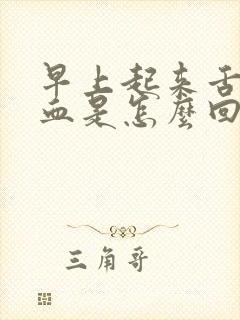 早上起来舌
血是怎麼回
三角哥